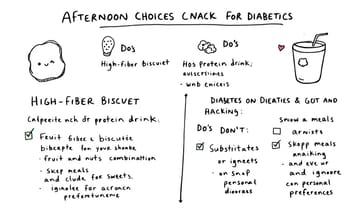 AFTERNOON CHOICES CNACK FOR DIABETICS
Do's
High-fiber biscuet
Do's
Hos protein drink;
HIGH-FIBER BISCUET
Calpecite nch dr protein drink;
Feuit fiber & biscuite
bibcepte fon your shonke
· fruit and nuts combination
· Skep meals
and clude for sweets.
DIABETES ON DIEATIES & GOT AND
HACKING:
Do's DON'T:
Substitates
or igneets
· on snap
personal
SNOW A MEALS
arnists
Skopp meals
anaiking
- and eve or
and ignnore
can personal
preferences